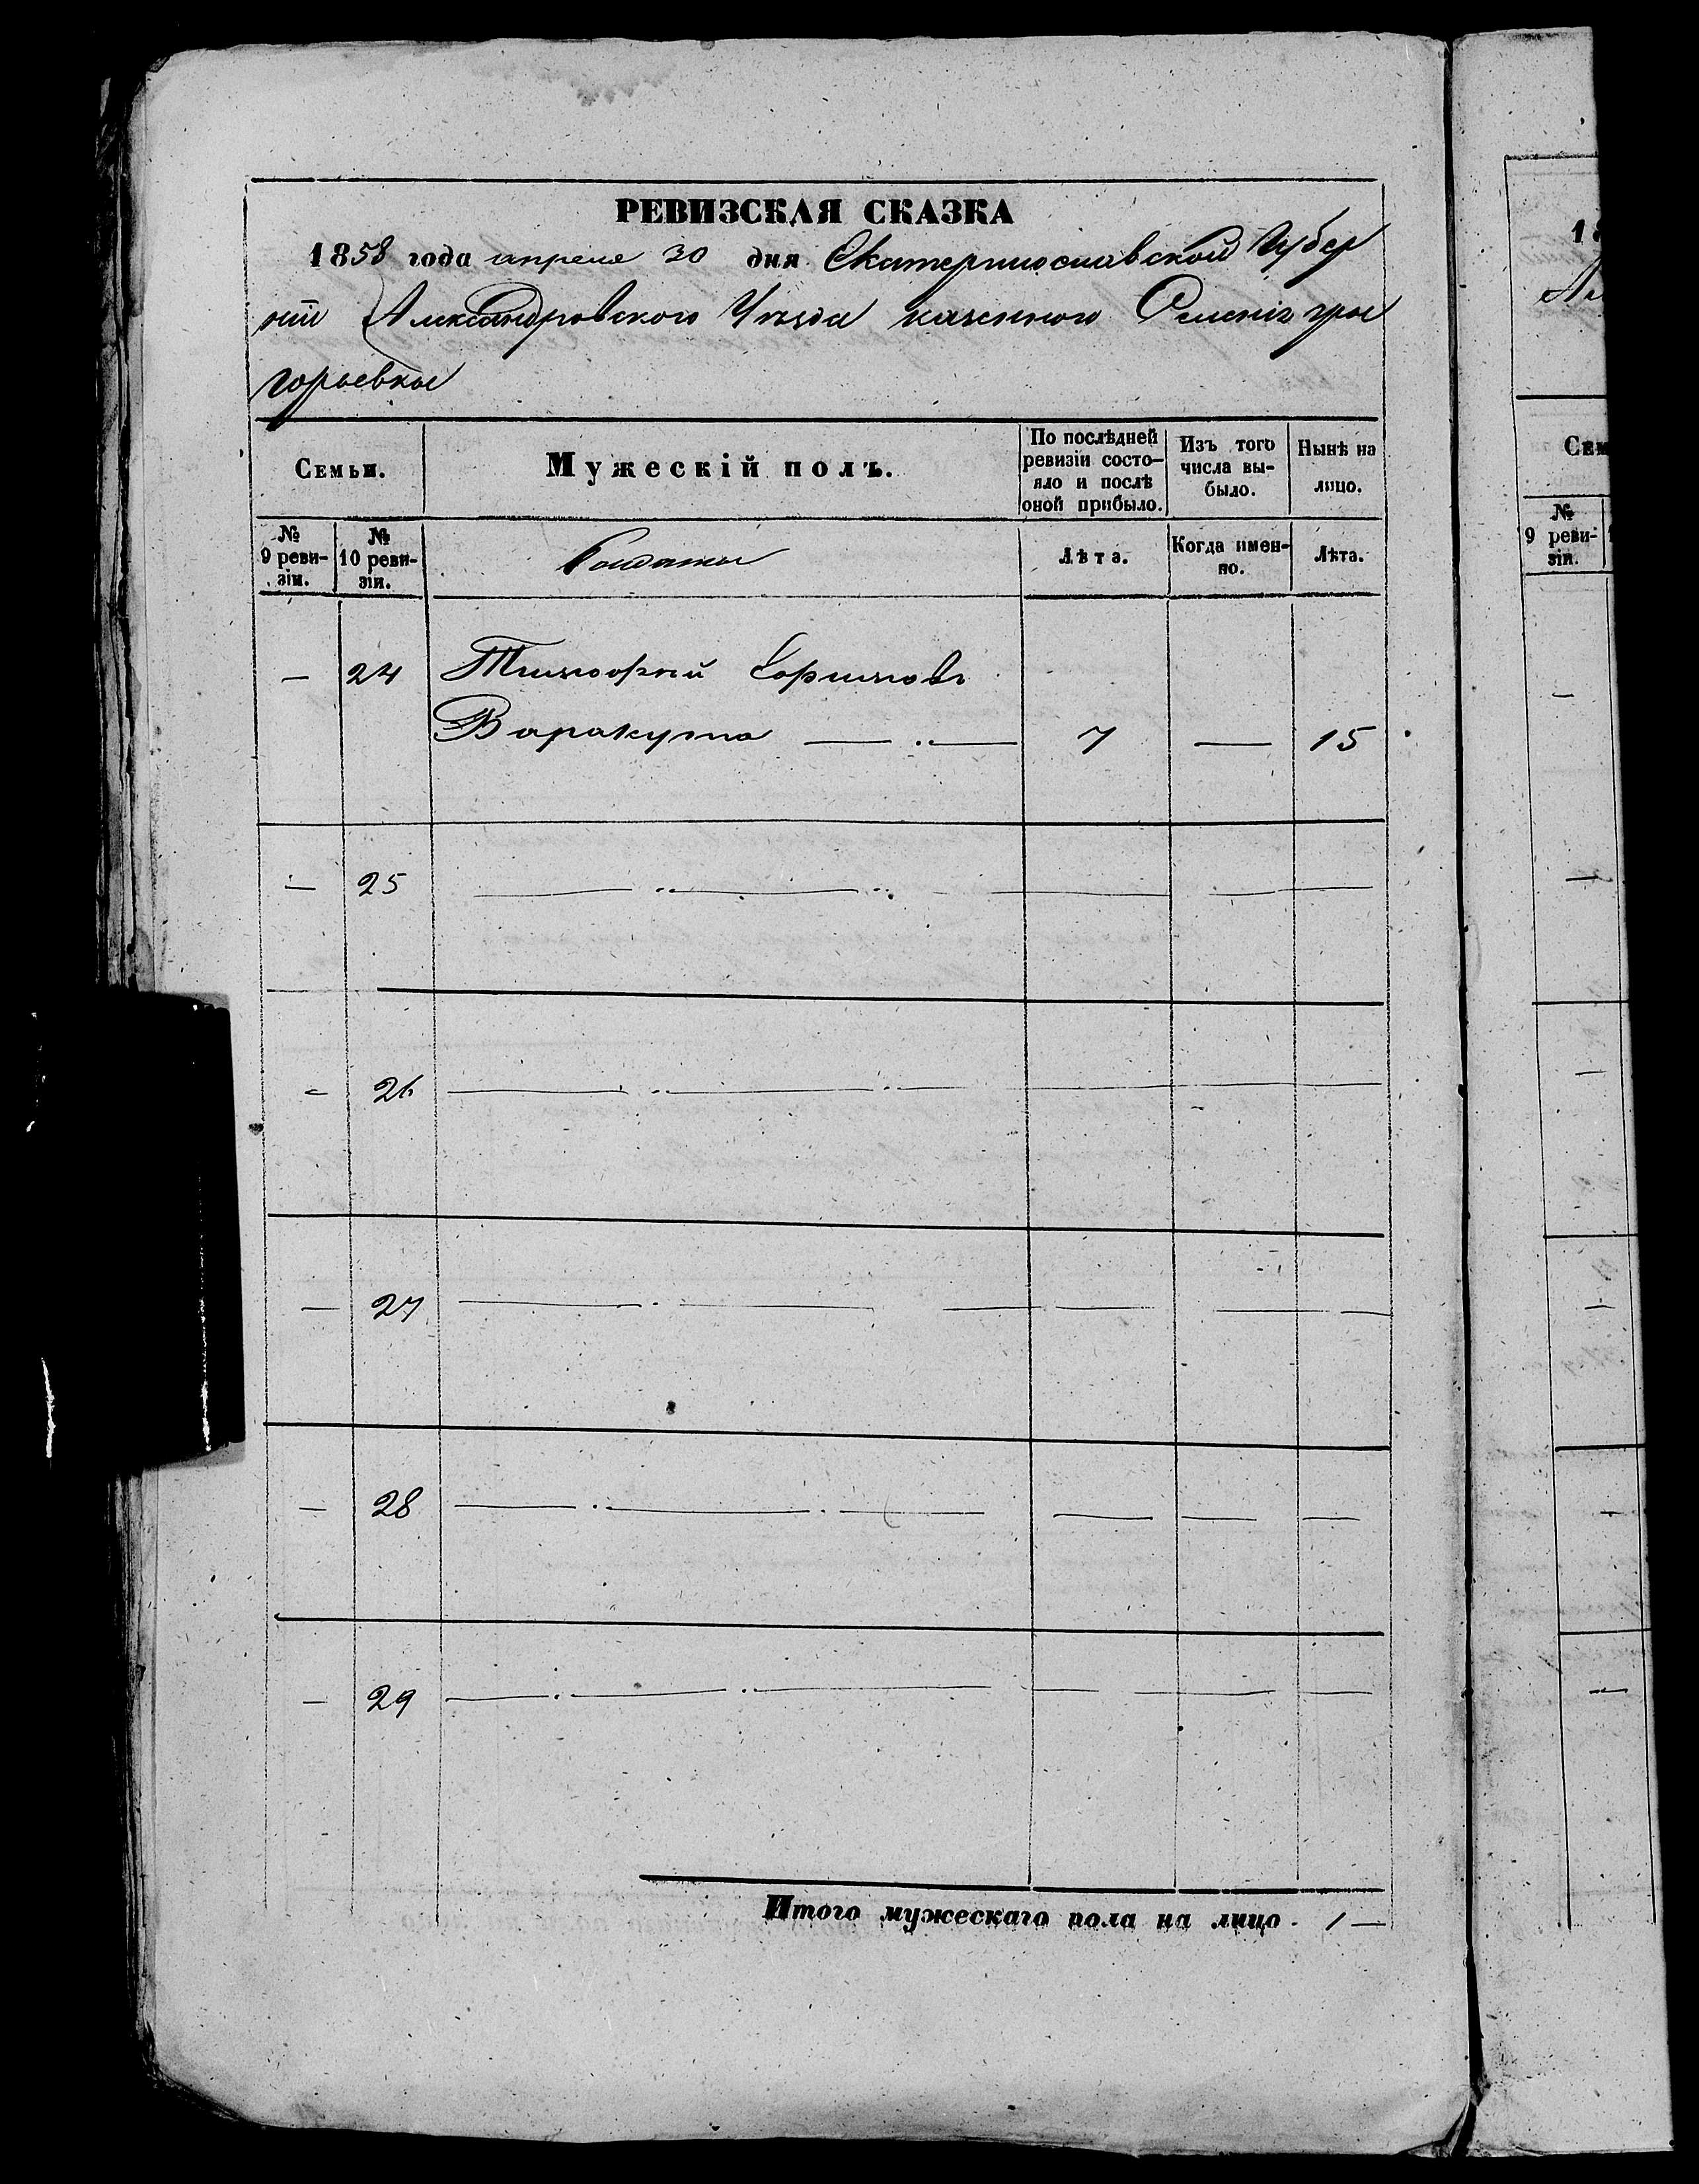 РЕВИЗСКАЯ СКАЗКА
1858 года апреля 30 дня Екатеринославской Губер
нии Александровского Уезда казенного Селенія Гри
горьевки
Семьи.
Мужескій полъ.
По послѣдней ревизіи состо-
яло и послѣ оной прибыло.
Изъ того числа вы-
было.
Нынѣ на лицо.
№ 9 реви-
зіи.
№ 10 реви-
зіи.
Солдаты
Лѣта.
Когда имен-
но.
Лѣта.
— 24 Тимофей Ефимовъ
Варакута — . — 7 — 15
— 25
— 26
— 27
— 28
— 29
Итого мужескаго пола на лицо . 1 —
1
Ал
Сем
№
9 реви-
зіи.